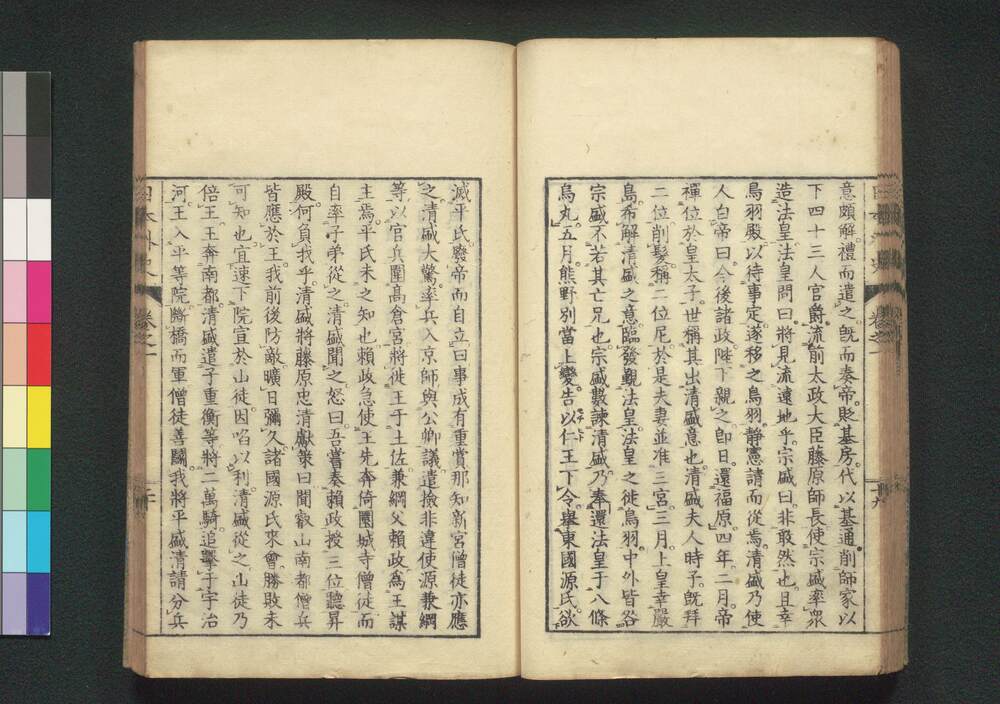 意頗解禮而遣之既而奏帝貶基房代以基通削師家以
下四十三人官爵流前太政大臣藤原師長使宗盛率衆
造法皇法皇問曰將見流遠地乎宗盛曰非敢然也且幸
鳥羽殿以待事定遂移之鳥羽靜憲請而從焉清盛乃使
人白帝曰今後諸政陛下親之卽日還福原四年二月帝
禪位於皇太子世稱其出清盛意也清盛夫人時子既拜
二位削髮稱二位尼於是夫妻並准三宮三月上皇幸嚴
島希解清盛之意臨發觀法皇法皇之徙鳥羽中外皆咎
宗盛不若其亡兄也宗盛數諫清盛乃奉還法皇于八條
烏丸五月熊野別當上變告以仁王下令舉東國源氏欲
滅平氏廢帝而自立曰事成有重賞那知新宮僧徒亦應
之清盛大驚率兵入京師與公卿議遣撿非違使源兼綱
等以官兵圍高倉宮將徙王于土佐兼綱父賴政爲王謀
主焉平氏未之知也賴政急使王先奔倚園城寺僧徒而
自率子弟從之清盛聞之怒曰吾嘗奏賴政授三位聽昇
殿何負我乎清盛將藤原忠清獻策曰聞叡山南都僧兵
皆應於王我前後防敵曠日彌久諸國源氏來會勝敗未
可知也宜速下院宣於山徒因啗以利清盛從之山徒乃
倍王王奔南都清盛遣子重衡等將二萬騎追擊于宇治
河王入平等院撤橋而軍僧徒善鬭我將平盛清請分兵
日本外史 卷之一